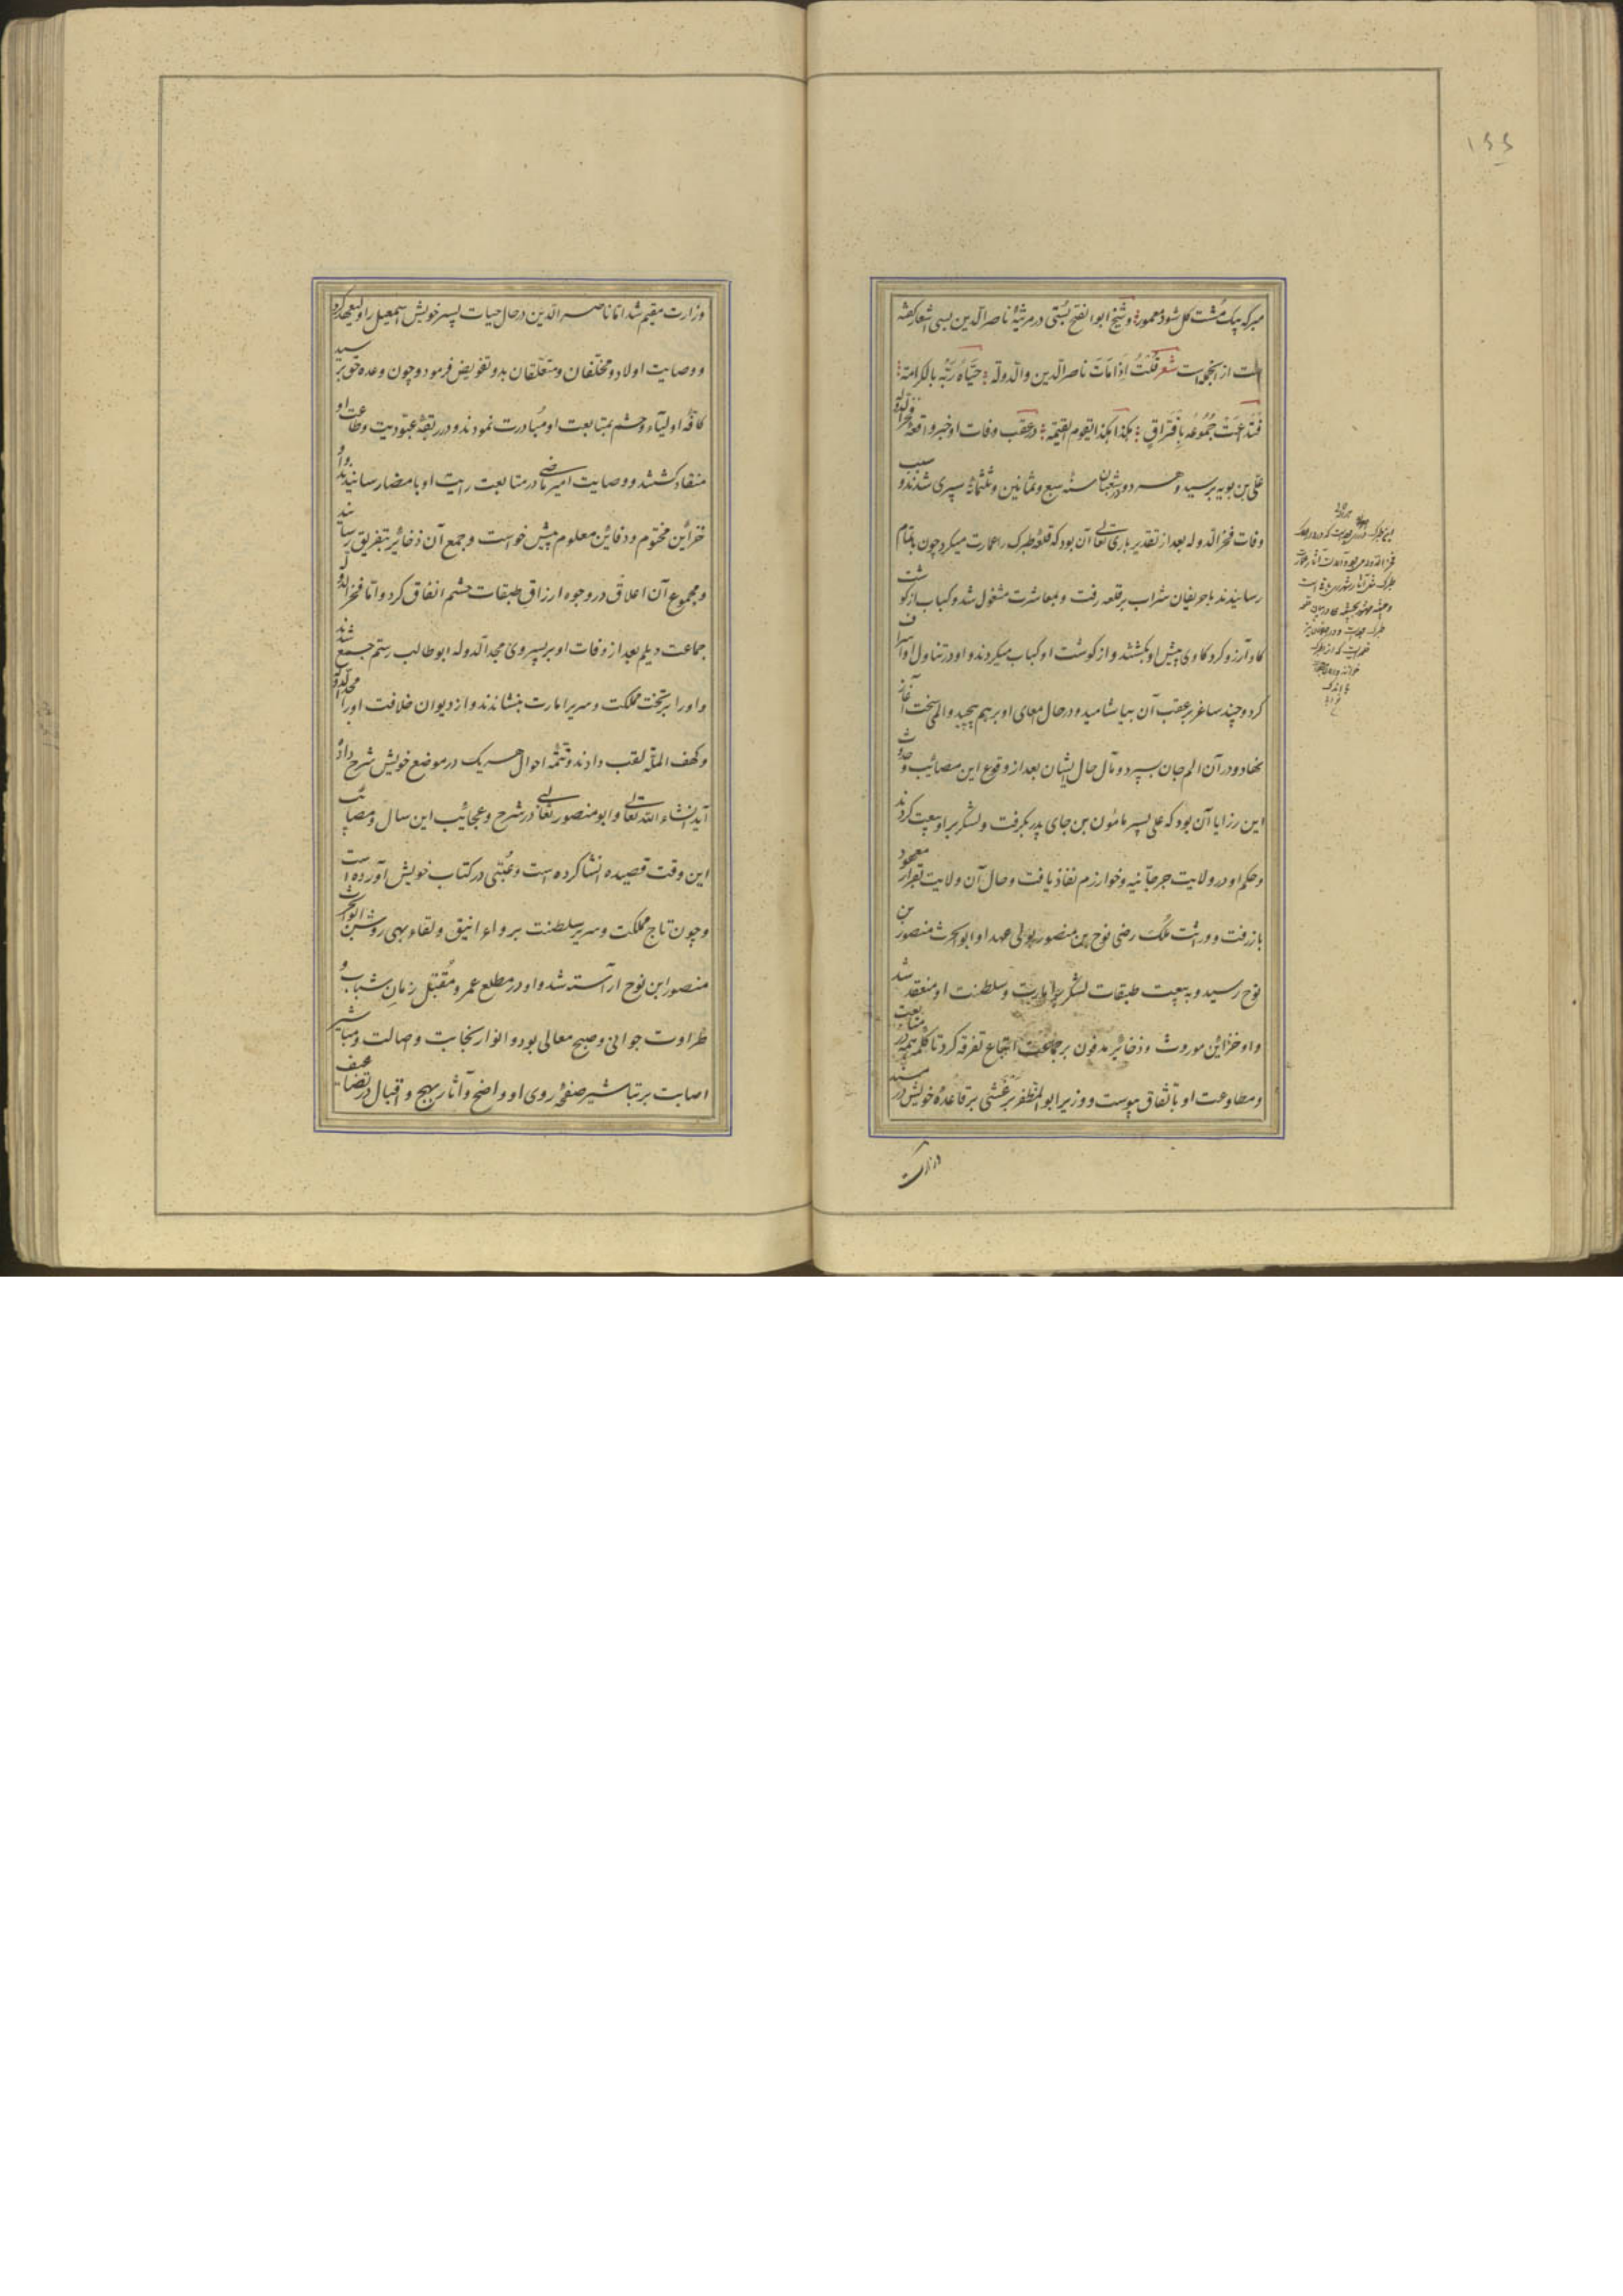 ۱۶۶
هرکه بیک مشت گل شود معمور و شیخ ابوالفتح بستی در مرثیهٔ ناصرالدین بسی اشعار گفته
است از آنجمله است شعر قلت اذ مات ناصر الدین والدوله حیاه ربه بالکرامة
فتداعت جموعه بافتراق هکذا هکذا تقوم القیمة و در عقب وفات او خبر واقعهٔ فخرالدوله
علی بن بویه برسید و هر دو در شعبان سنه سبع و ثمانین و ثلثمائه سپری شدند و سبب
وفات فخرالدوله بعد از تقدیر باری تعالی آن بود که قلعهٔ طبرک را عمارت میکرد چون باتمام
رسانیدند با حریفان شراب بر قلعه رفت و بمعاشرت مشغول شد و کباب از گوشت
گاو آرزو کرد گاوی پیش او بکشتند و از گوشت او کباب میکردند و او در تناول او اسراف
کرد و چند ساغر بر عقب آن بیاشامید و در حال معای او برهم پیچید و المی سخت آغاز
نهاد و در آن الم جان بسپرد و مآل حال ایشان بعد از وقوع این مصائب و حدوث
این رزایا آن بود که علی پسر مامون بن جای پدر بگرفت و لشکر بر او بیعت کردند
و حکم او در ولایت جرجانیه و خوارزم نفاذ یافت و حال آن ولایت بقرار معهود
باز رفت و وراثت ملک رضی نوح بن منصور بولی عهد او ابوالحرث منصور بن
نوح رسید و به بیعت طبقات لشکر امارت و سلطنت او منعقد شد
و او خزائن موروث و ذخائر مدفون بر جماعت اتباع تفرقه کرد تا کلمه همه در متابعت
و مطاوعت او باتفاق پیوست و وزیر ابوالمظفر برغشی بر قاعدهٔ خویش در مسند
وزارت
وزارت مقیم شد اما ناصرالدین در حال حیات پسر خویش اسمعیل را ولیعهد کرد
و وصایت اولاد و مخلفان و متعلقان بدو تفویض فرمود و چون وعده حق برسید
کافهٔ اولیاء و حشم بمتابعت او مبادرت نمودند و در ربقهٔ عبودیت و طاعت او
منقاد گشتند و وصایت امیر ماضی در متابعت رایت او بامضا رسانیدند و او
خزاین مختوم و دفاین معلوم پیش خواست و جمع آن ذخائر بتفریق رسانید
و مجموع آن اعلاق در وجوه ارزاق طبقات حشم انفاق کرد و اما فخرالدوله
جماعت دیلم بعد از وفات او بر پسر وی مجدالدوله ابوطالب رستم جمع شدند
و او را بر تخت مملکت و سریر امارت بنشاندند و از دیوان خلافت او را مجدالدوله
و کهف المله لقب دادند و تتمه احوال هر یک در موضع خویش شرح داده
آید انشاء الله تعالی و ابو منصور ثعالبی در شرح و عجائیب این سال و مصائب
این وقت قصیده انشا کرده است و عتبی در کتاب خویش آورده است
و چون تاج مملکت و سریر سلطنت برواء انیق و لقاء بهی روشن ابوالحرث
منصور ابن نوح آراسته شد و او در مطلع عمر و مقتبل زمان شباب و
طراوت جوانی و صبح معالی بود و انوار نجابت و اصالت و مباشیر
اصابت بر تباشیر صفحهٔ روی او واضح و آثار بهج و اقبال در تضاعیف